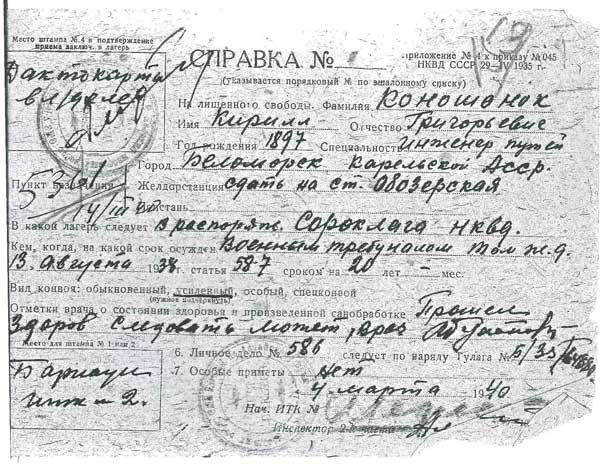 Место штампа № 4 в подтверждение
приема заключ. в лагерь
19
СПРАВКА №
Приложение № 4 к приказу № 045
НКВД СССР 29-IV 1935 г.
(указывается порядковый № по эшалонному списку)
Дактокарта
На лишенного свободы. Фамилия Коношонок
Имя Кирилл Отчество Григорьевич
Год рождения 1897 Специальность инженер путей
Город Беломорск Карельской Асср.
Пункт назначения
Желдорстанция сдать на ст. Обозерская
Пристань
В какой лагерь следует в распоряж. Сороклага НКВД.
Кем, когда, на какой срок осужден Военным трибуналом Том ж.д.
13 августа 1938 г. статья 58-7 сроком на 20 лет – мес.
Вид конвоя: обыкновенный, усиленный, особый, спецконвой
(нужное подчеркнуть)
Отметки врача о состоянии здоровья и произведенной санобработке Прошел
Здоров следовать может, врач
Место для штампа № 1 или 2
6. Личное дело № 586 следует по наряду Гулага № 5/33
7. Особые приметы нет
Барнаул
итк № 2.
4 марта 1940
Нач. ИТК №
Инспектор 2-й части